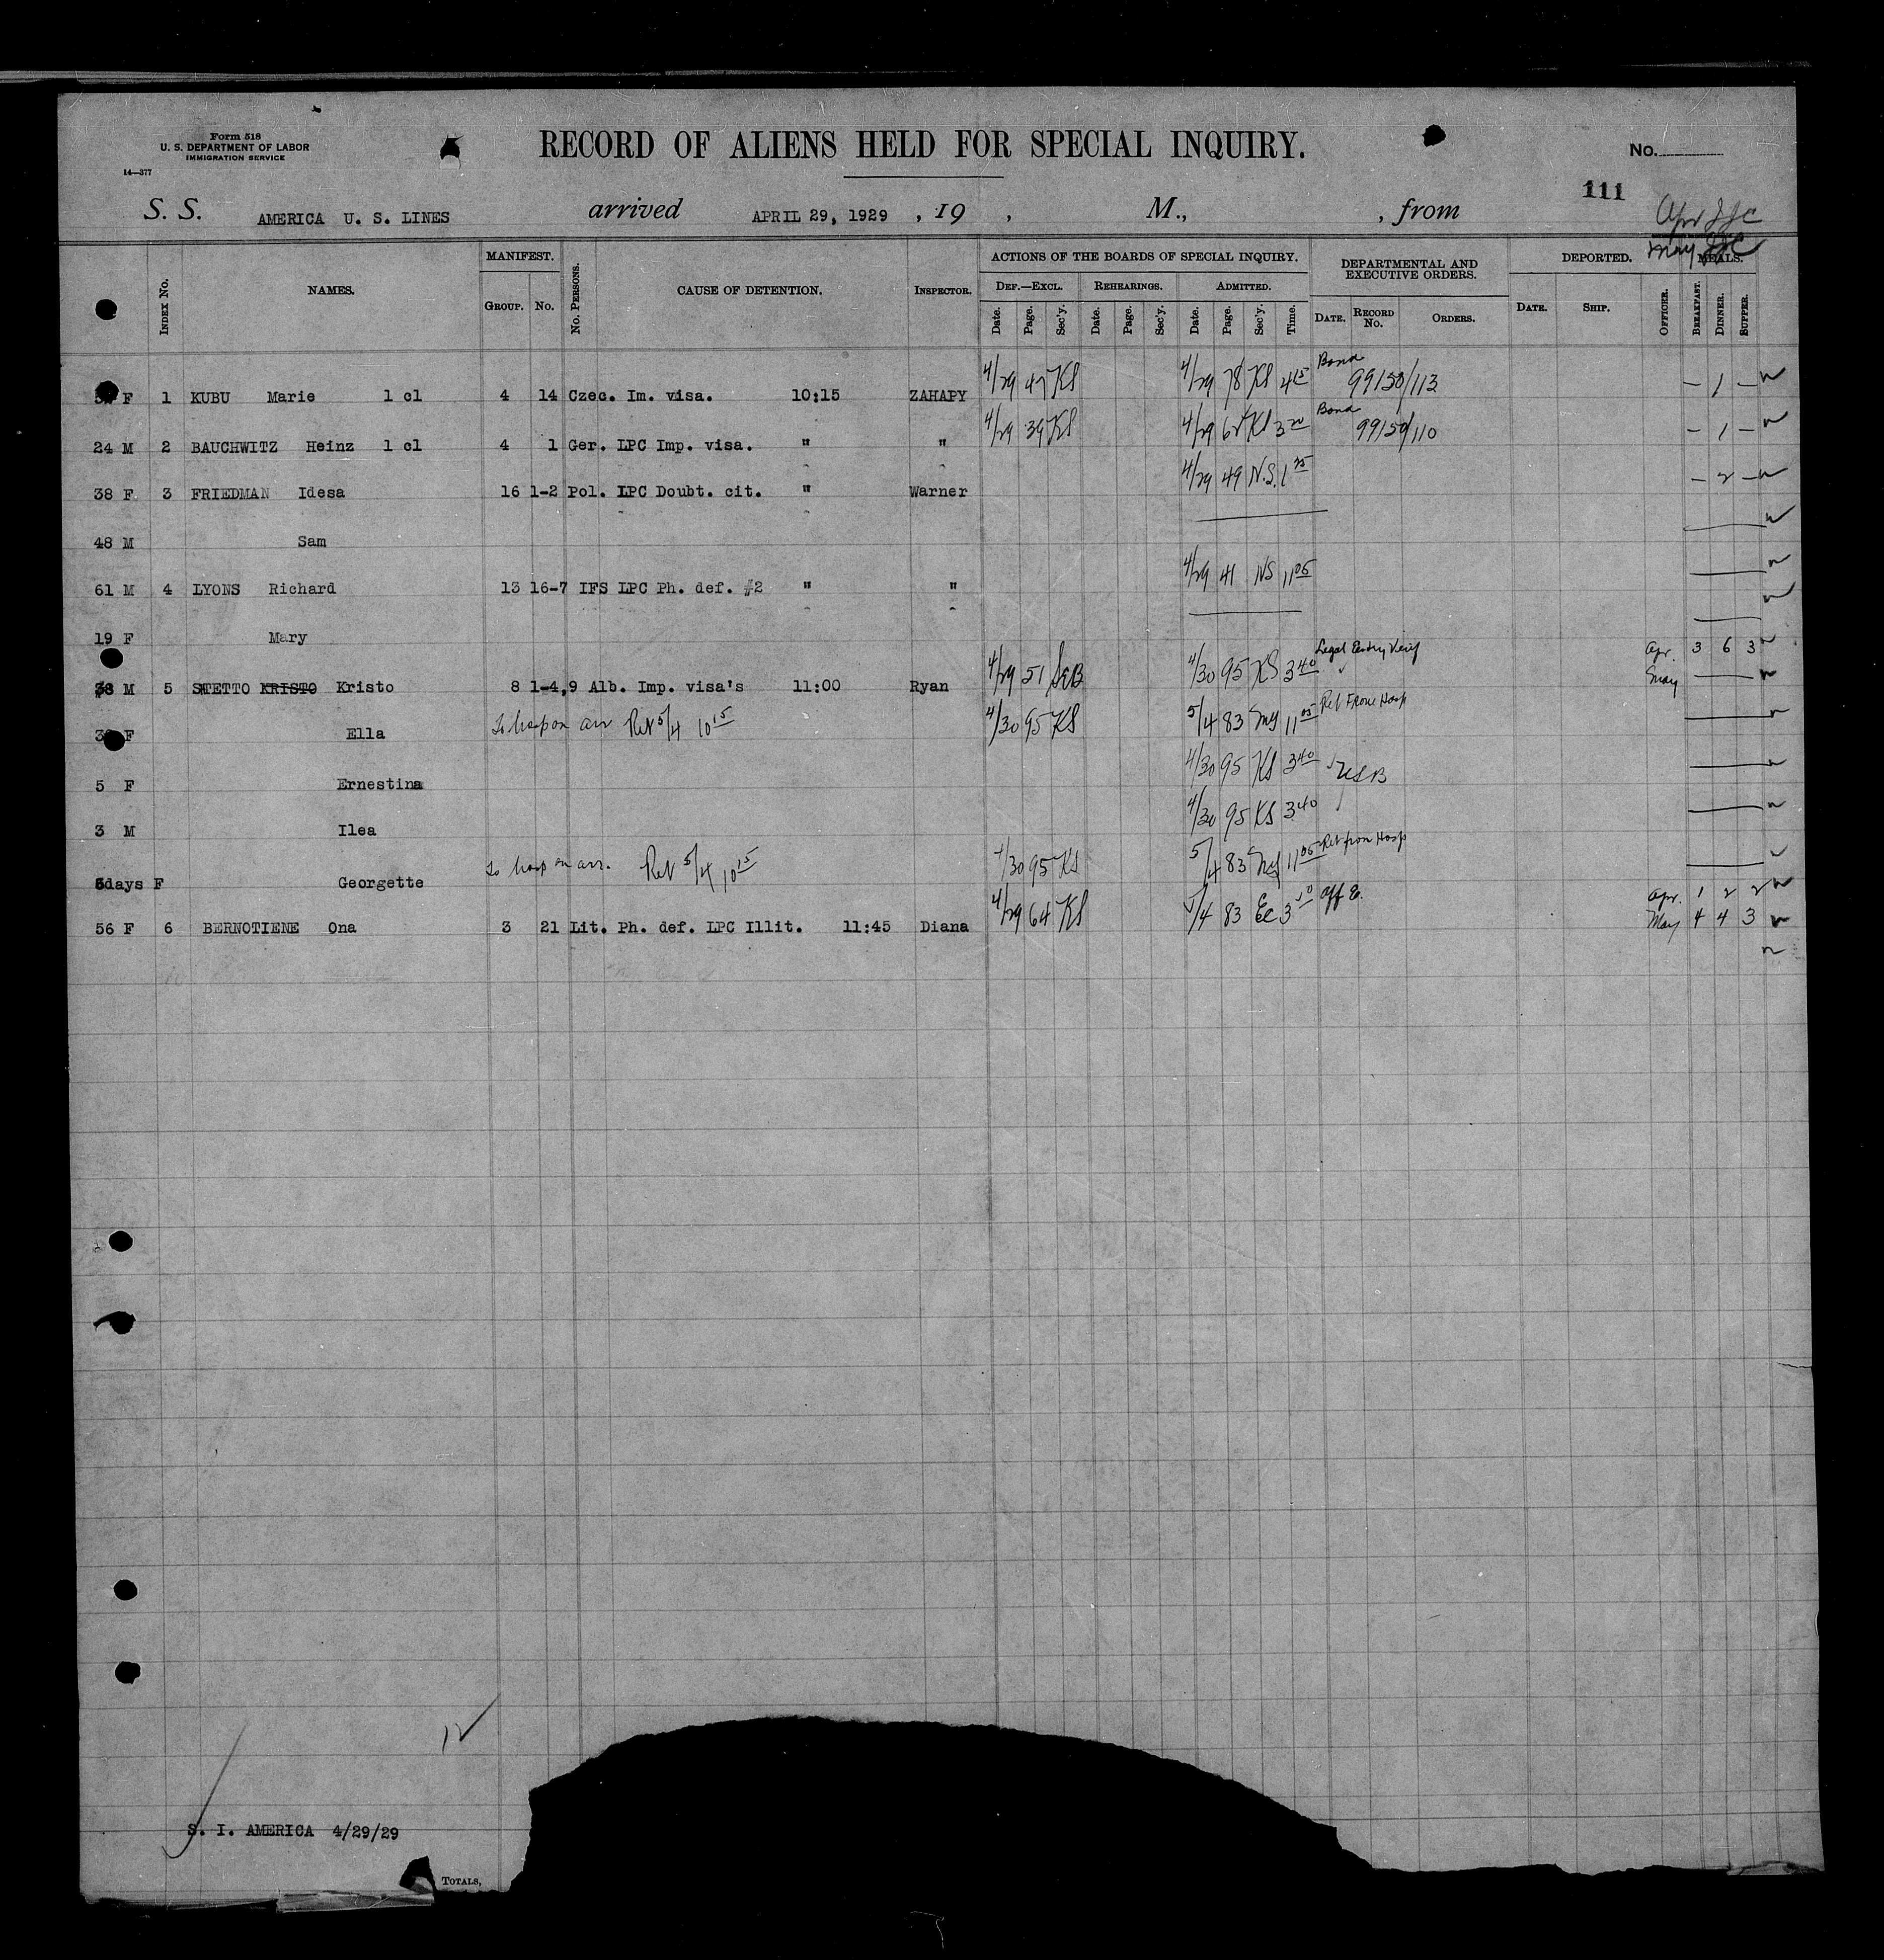 Form 518
U. S. DEPARTMENT OF LABOR
IMMIGRATION SERVICE
14—377
RECORD OF ALIENS HELD FOR SPECIAL INQUIRY.
No.
111
S. S. AMERICA U. S. LINES arrived APRIL 29, 1929 , 19 , M., , from
Apr
May
INDEX NO. NAMES. MANIFEST. GROUP. NO. NO. PERSONS. CAUSE OF DETENTION. INSPECTOR. ACTIONS OF THE BOARDS OF SPECIAL INQUIRY. DEPARTMENTAL AND EXECUTIVE ORDERS. DEPORTED. MEALS.
DEF.—EXCL. REHEARINGS. ADMITTED.
Date. Page. Sec'y. Date. Page. Sec'y. Date. Page. Sec'y. Time. DATE. RECORD NO. ORDERS. DATE. SHIP. OFFICER. BREAKFAST. DINNER. SUPPER.
F 1 KUBU Marie 1 cl 4 14 Czec. Im. visa. 10:15 ZAHAPY 4/29 47 KS 4/29 78 KS 4 15 Bond 99150/113 – 1 –
24 M 2 BAUCHWITZ Heinz 1 cl 4 1 Ger. LPC Imp. visa. " " 4/29 39 KS 4/29 62 KS 3 20 Bond 99150/110 – 1 –
38 F 3 FRIEDMAN Idesa 16 1-2 Pol. LPC Doubt. cit. " Warner 4/29 49 N.S. 1 – 2 –
48 M Sam
61 M 4 LYONS Richard 13 16-7 IFS LPC Ph. def. #2 " " 4/29 41 NS 11 05
19 F Mary
38 M 5 STETTO KRISTO Kristo 8 1-4,9 Alb. Imp. visa's 11:00 Ryan 4/29 51 4/30 95 KS 3 40 Legal Entry Verif Apr. 3 6 3
May
F Ella To hosp on arr Ret 5/4 10 15 4/30 95 KS 5/4 83 11 05 Ret From Hosp
5 F Ernestina 4/30 95 KS 3 40 USB
3 M Ilea 4/30 95 KS 3 40
6days F Georgette To hosp on arr. Ret 5/4 10 15 4/30 95 KS 5/4 83 11 05 Ret from Hosp
56 F 6 BERNOTIENE Ona 3 21 Lit. Ph. def. LPC Illit. 11:45 Diana 4/29 64 KS 5/4 83 Ec 3 Apr. 1 2 2
May 4 4 3
12
S. I. AMERICA 4/29/29
TOTALS,